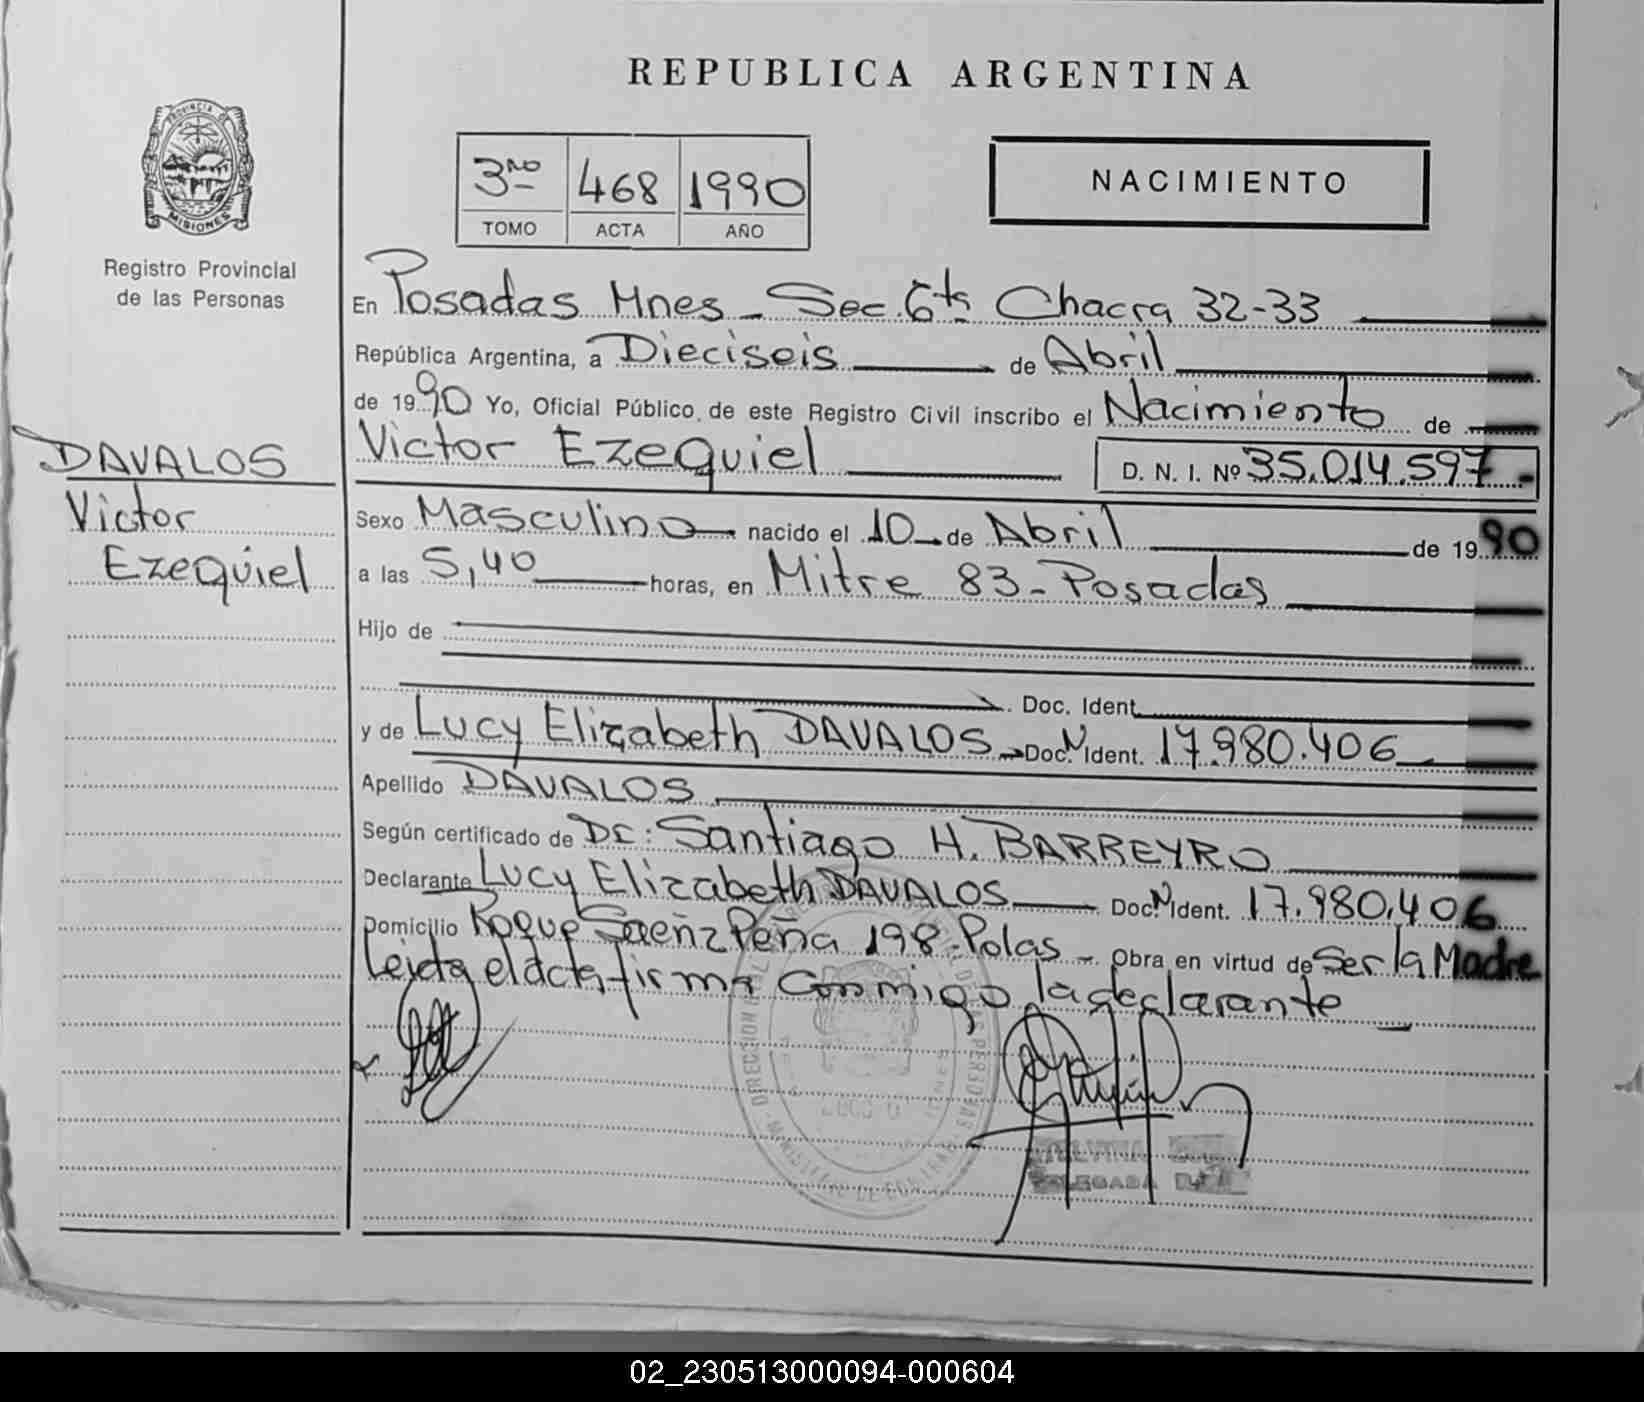 REPUBLICA ARGENTINA
PROVINCIA DE MISIONES
Registro Provincial
de las Personas
3RO 468 1990
TOMO ACTA AÑO
NACIMIENTO
En Posadas Mnes - Sec. 6ta Chacra 32-33
República Argentina, a Dieciseis de Abril
de 1990 Yo, Oficial Público de este Registro Civil inscribo el Nacimiento de
Victor Ezequiel D. N. I. Nº 35.014.597.-
DAVALOS
Victor
Ezequiel
Sexo Masculino nacido el 10 de Abril de 1990
a las 5,40 horas, en Mitre 83 - Posadas
Hijo de
Doc. Ident.
y de Lucy Elizabeth DAVALOS Doc. N Ident. 17.980.406
Apellido DAVALOS
Según certificado de Dr: Santiago H. BARREYRO
Declarante Lucy Elizabeth DAVALOS Doc. N Ident. 17.980.406
Domicilio Roque Saenz Peña 198 - Polas - Obra en virtud de Ser la Madre
Leida el acta firma conmigo la declarante
DELEGADA
02_230513000094-000604